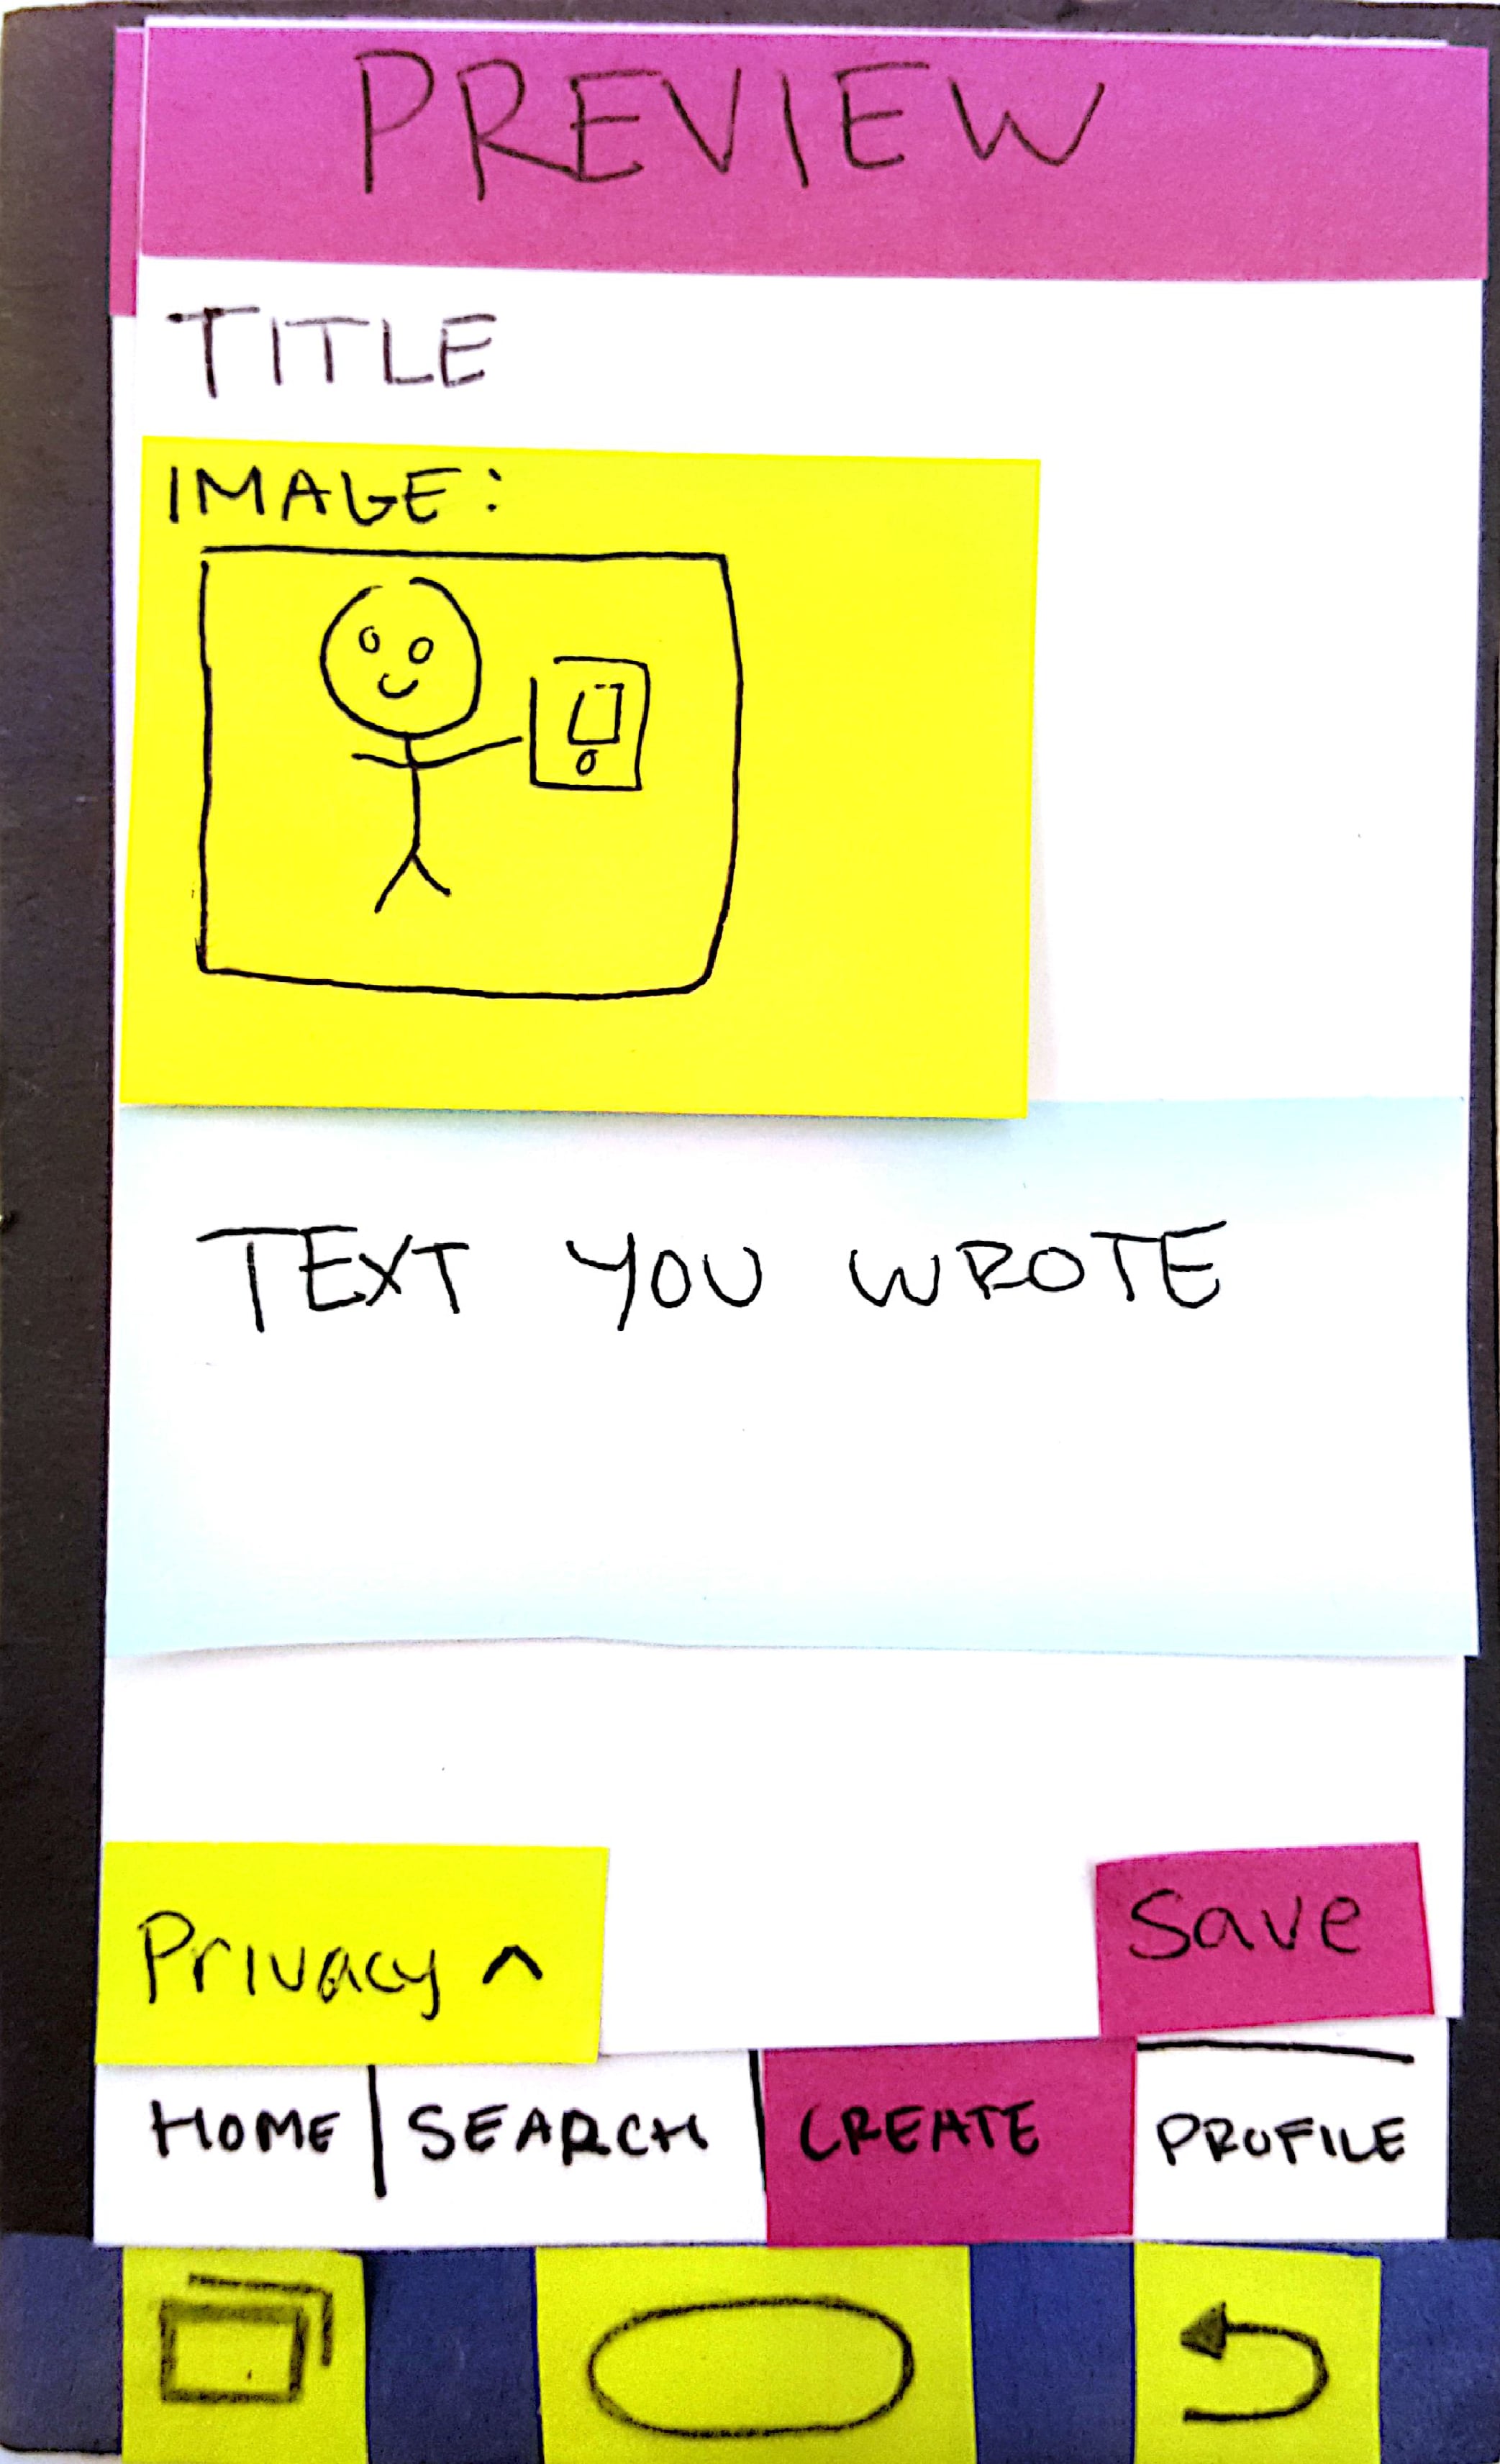 PREVIEW
TITLE
IMAGE:
TEXT YOU WROTE
Privacy ^
Save
HOME | SEARCH CREATE PROFILE